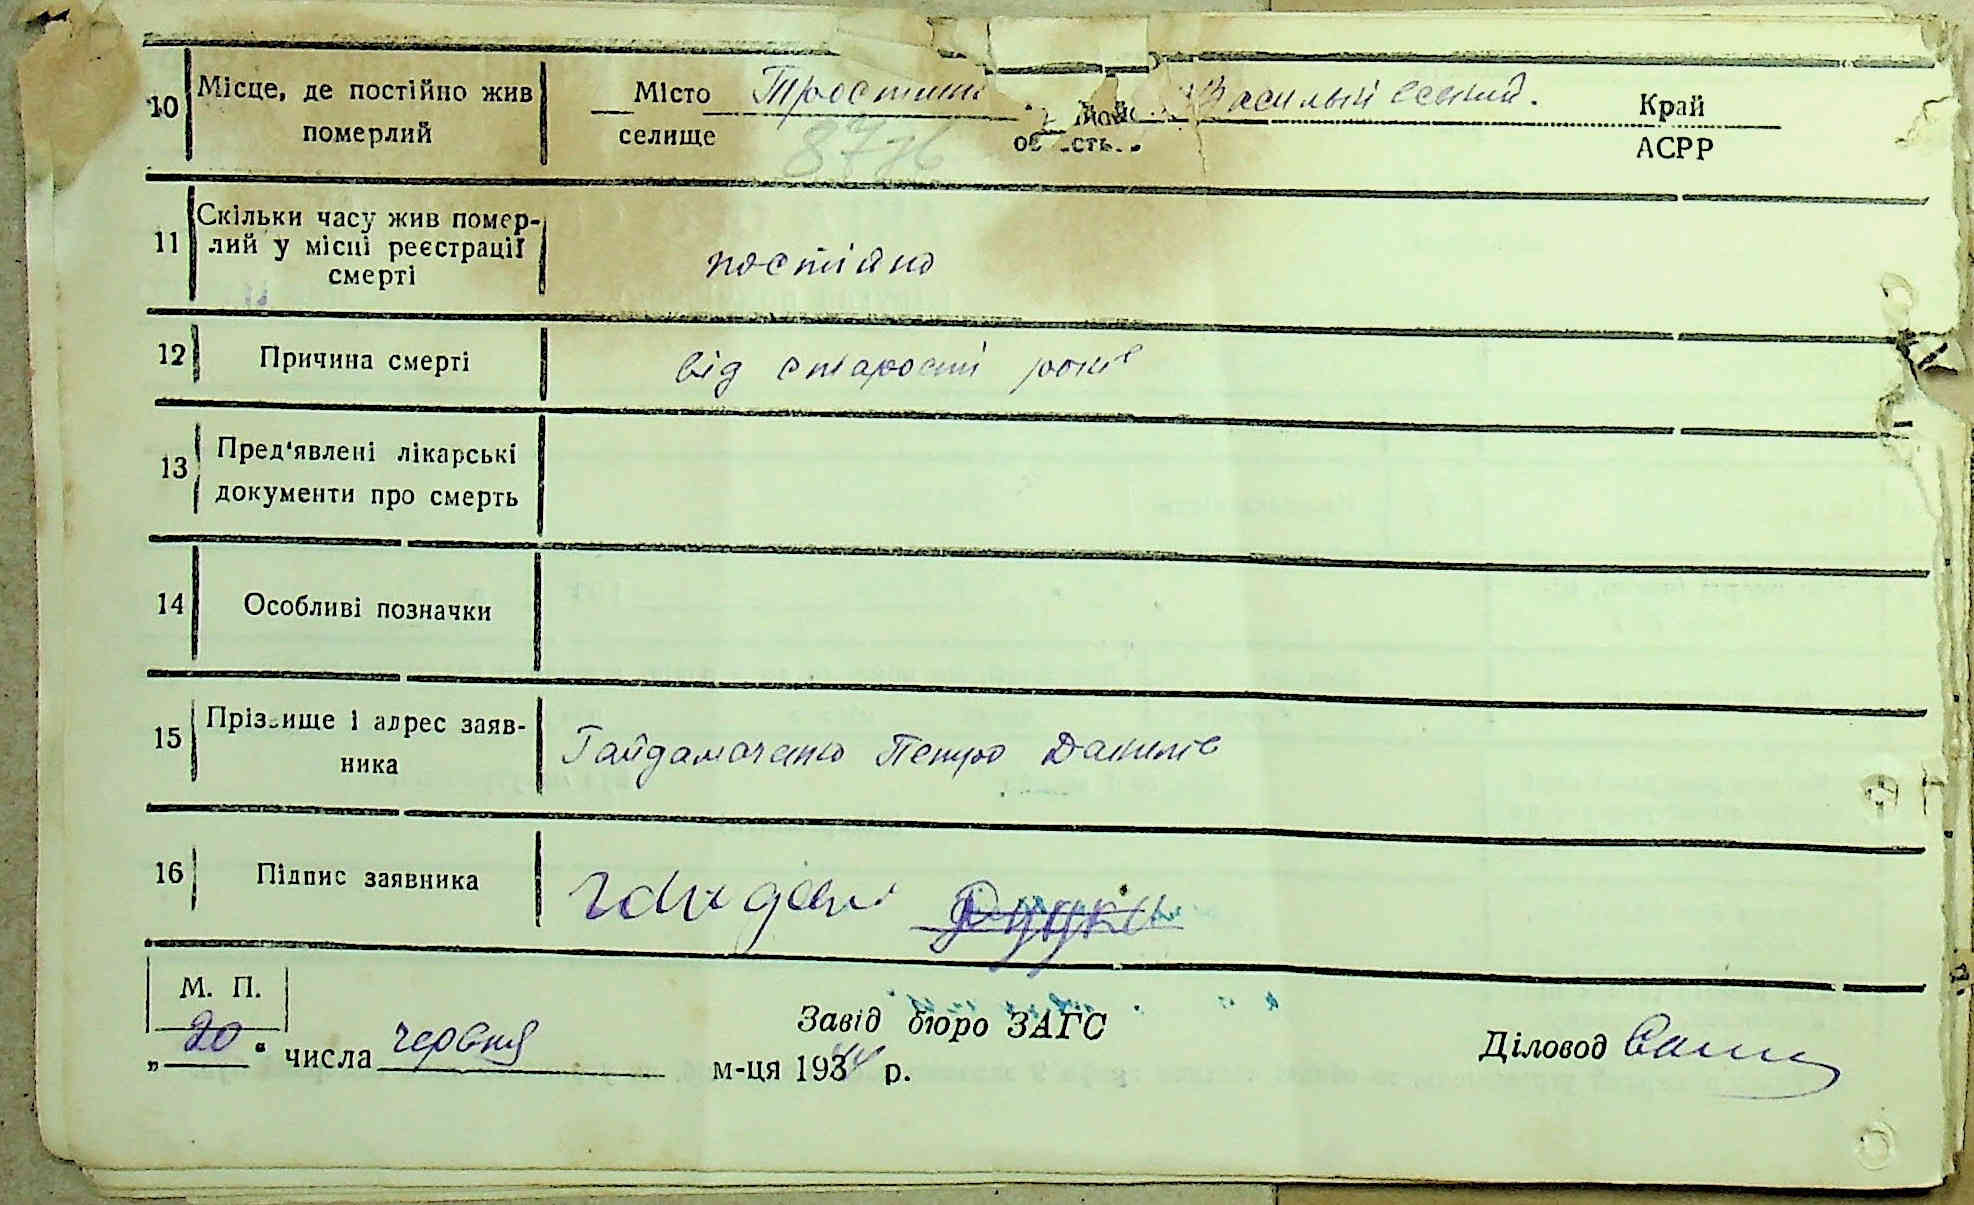 10 Місце, де постійно жив померлий
Місто селище Тростин район область Васильківський. Край АСРР
87 зв
11 Скільки часу жив помер-
лий у місці реєстрації
смерті
постійно
12 Причина смерті від старості років
13 Пред'явлені лікарські
документи про смерть
14 Особливі позначки
15 Прізвище і адрес заяв-
ника
Гайдамаченко Петро Данилів
16 Підпис заявника
М. П.
Завід бюро ЗАГС
„20“ числа червня м-ця 1944 р.
Діловод